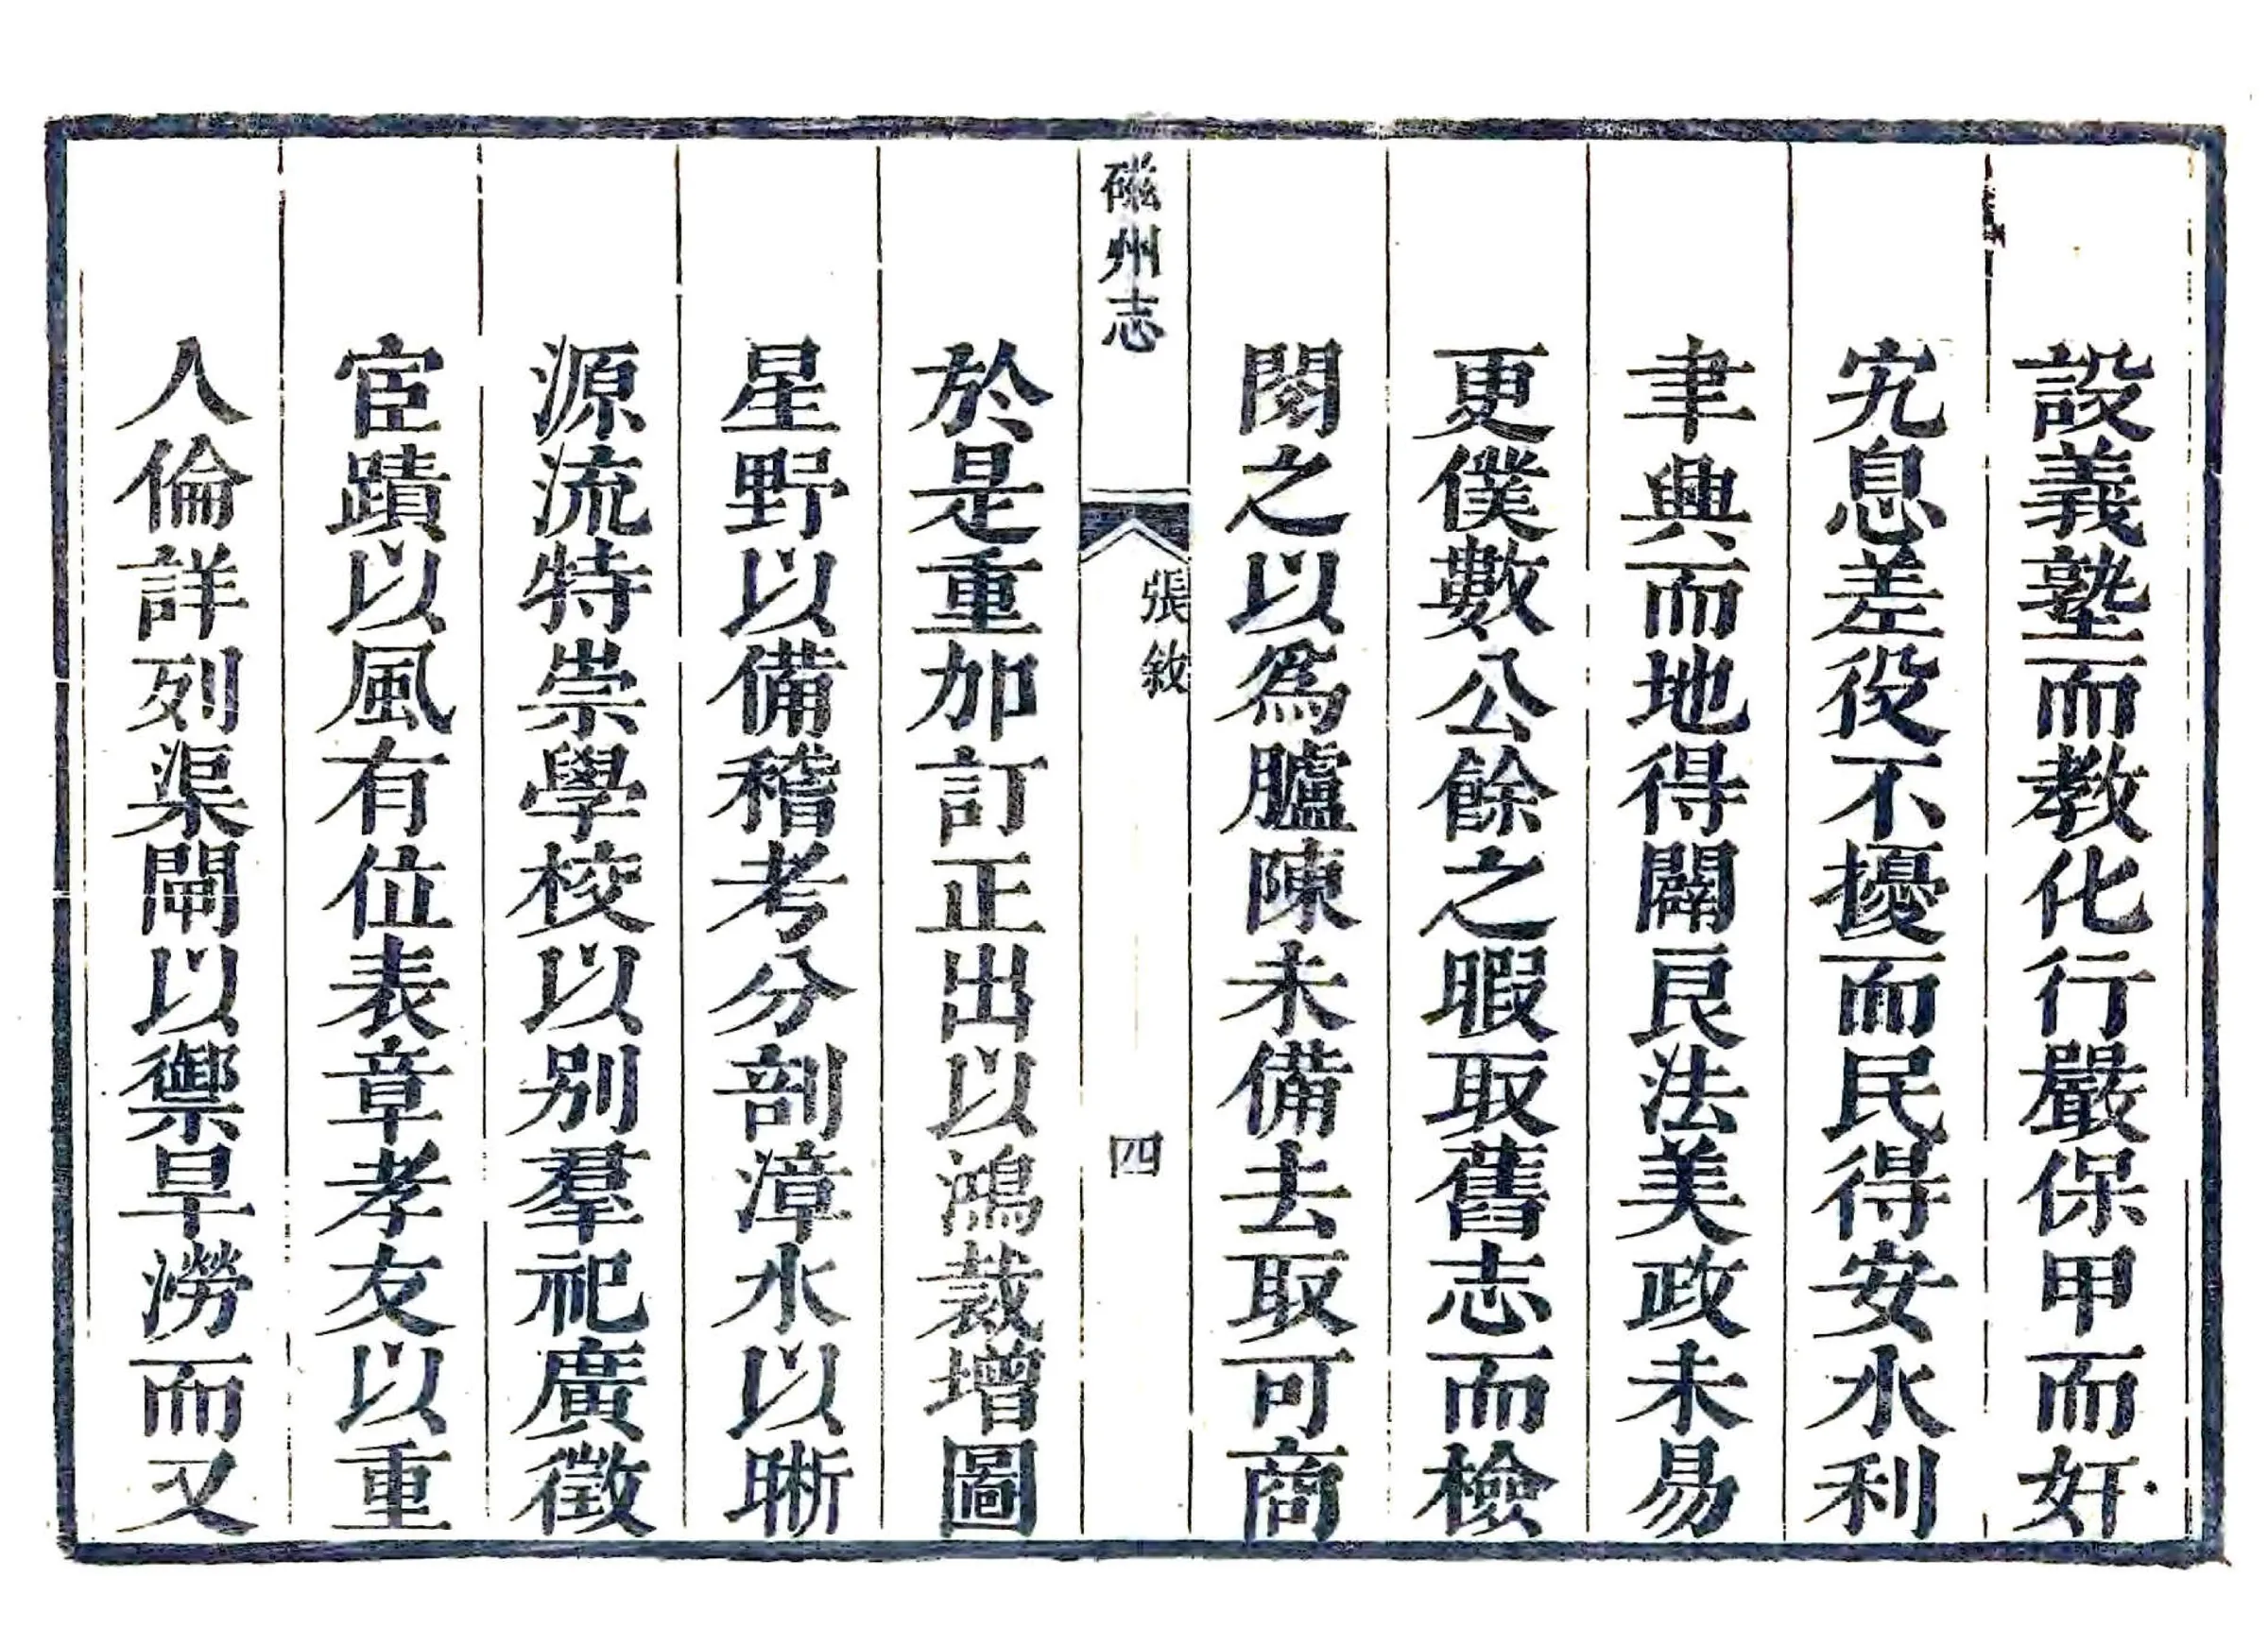 設義塾而教化行嚴保甲而奸
宄息差役不擾而民得安水利
聿興而地得闢良法美政未易
更僕數公餘之暇取舊志而檢
閱之以爲臚陳未備去取可商
磁州志
張敘
四
於是重加訂正出以鴻裁增圖
星野以備稽考分剖漳水以晰
源流特崇學校以別羣祀廣徵
宦蹟以風有位表章孝友以重
人倫詳列渠閘以禦旱澇而又